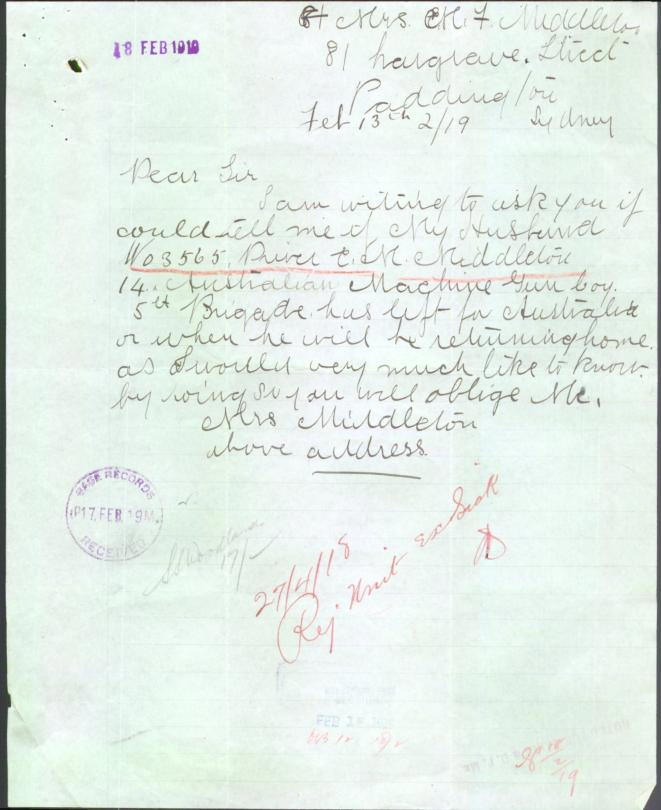 18 FEB 1919
Mrs. E. M. F. Middleton
81 hargrave. Street
Paddington
Feb 13th 2/19 Sydney
Dear Sir
I am writing to ask you if
could tell me if My Husband
No 3565. Privet E. M. Middleton
14. Australian Machine Gun Coy.
5th Brigade. has left for Australia
or when he will be returning home.
as I would very much like to know.
by doing So you will oblige Me.
Mrs Middleton
above address.
BASE RECORDS
17. FEB. 19
RECEIVED
17/
27/4/18
Rej Unit ex Sick
FEB
18/2/19